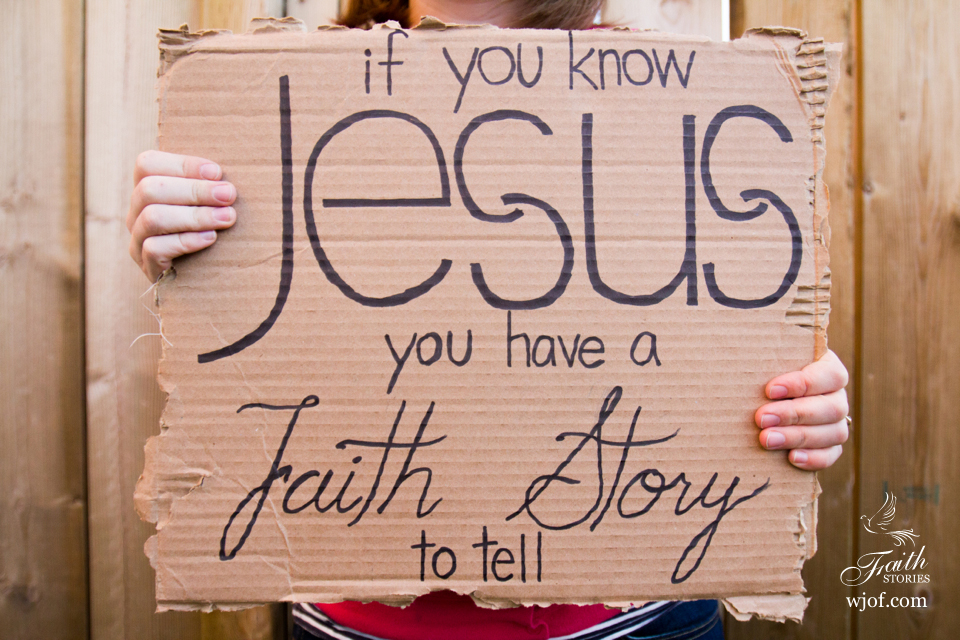 if you know
Jesus
you have a
Faith Story
to tell
Faith
STORIES
wjof.com